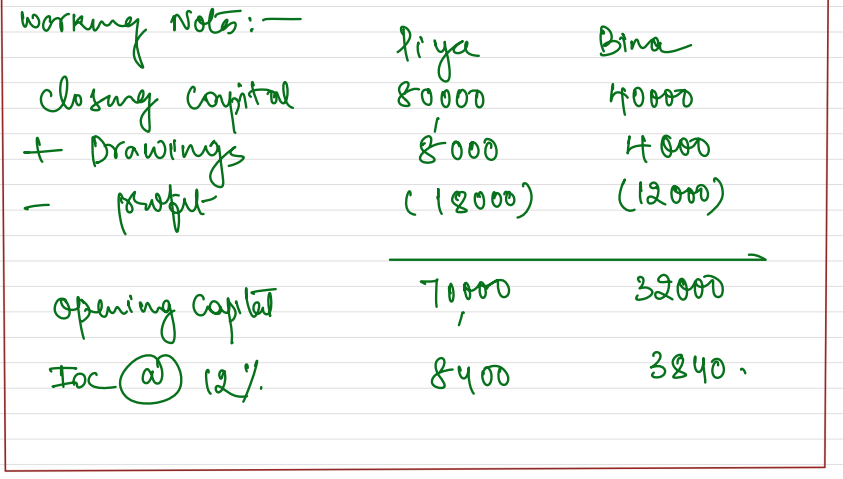 Working Notes:—
Piya Bina
Closing Capital 80000 40000
+ Drawings 8000 4000
- profit (18000) (12000)
Opening Capital 70,000 32000
IOC @ 12%. 8400 3840.